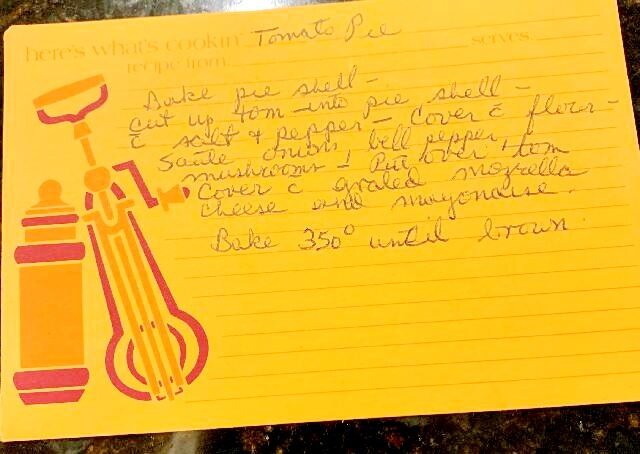 here's what's cookin' Tomato Pie serves
recipe from
Bake pie shell -
Cut up tom - into pie shell -
c̄ salt + pepper - Cover c̄ flour -
Saute onion, bell pepper,
mushrooms + Put over tom
Cover c̄ grated mozrella
cheese and mayonaise.
Bake 350° until brown.